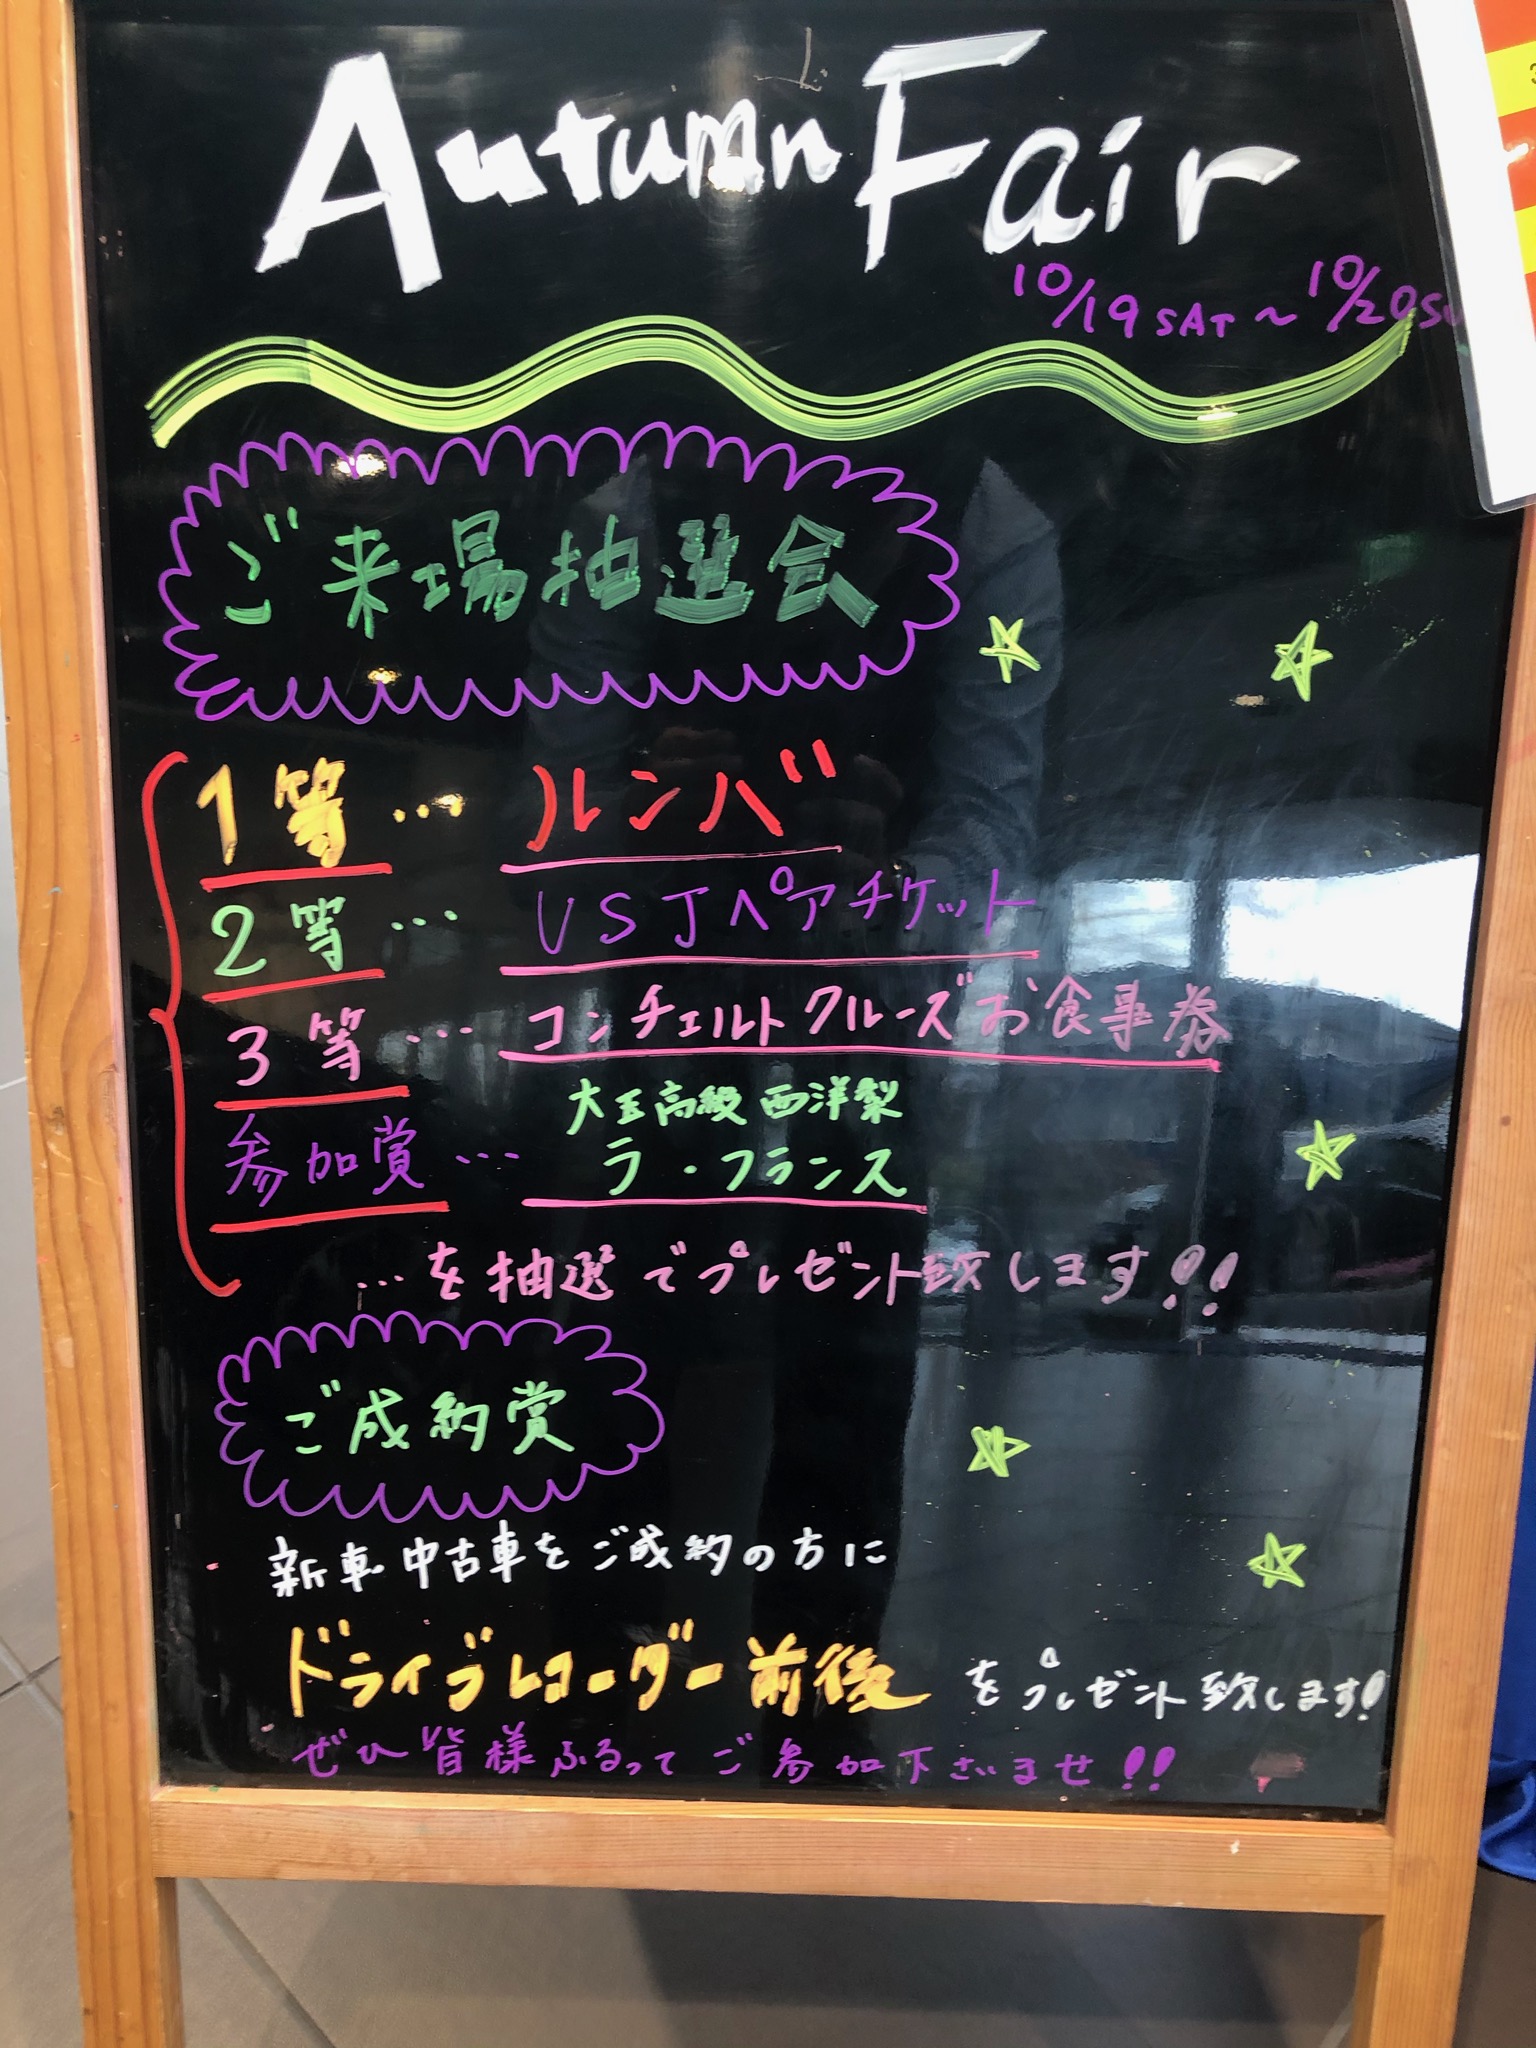 Autumn Fair
10/19 SAT ~ 10/20 SU
ご来場抽選会
1等… ルンバ
2等… USJペアチケット
3等… コンチェルトクルーズお食事券
大玉高級西洋製
参加賞… ラ・フランス
…を抽選でプレゼント致します!!
ご成約賞
新車中古車をご成約の方に
ドライブレコーダー前後 をプレゼント致します!
ぜひ皆様ふるってご参加下さいませ!!